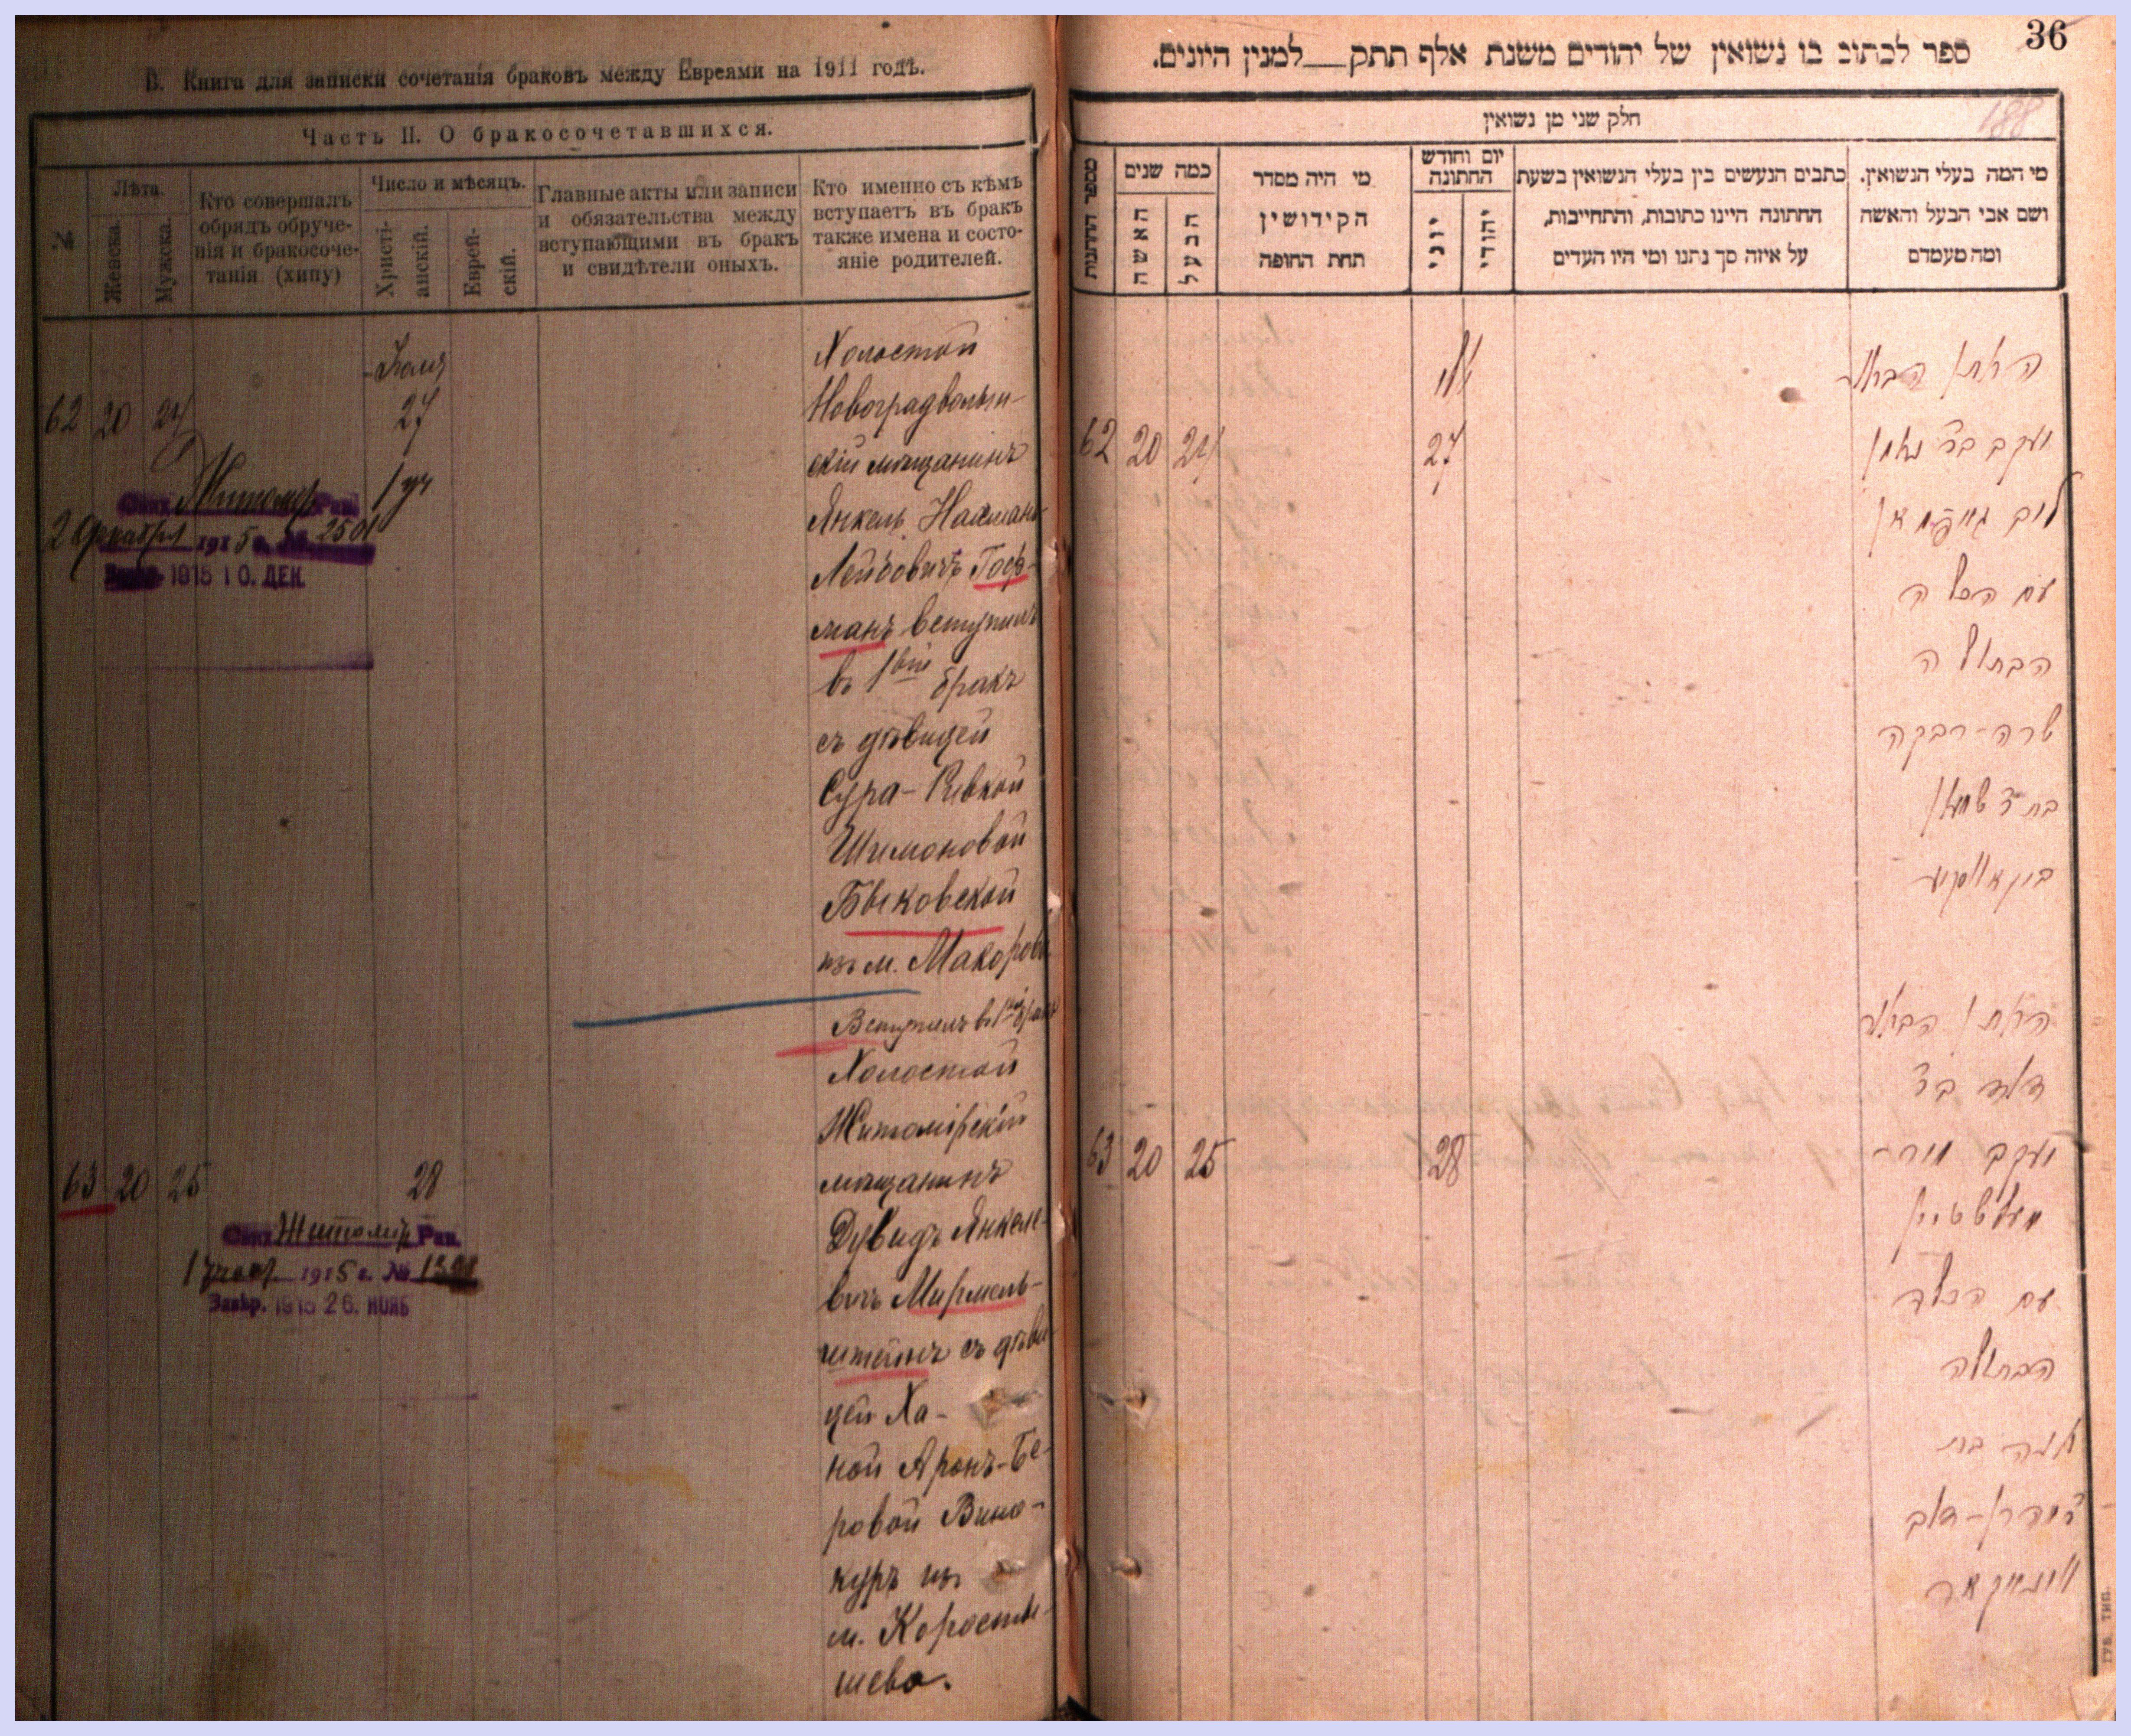 В. Книга для записки сочетанія браковъ между Евреями на 1911 годъ.
Часть II. О бракосочетавшихся.
№
Лѣта.
Женска.
Мужска.
Кто совершалъ
обрядъ обруче-
нія и бракосоче-
танія (хипу)
Число и мѣсяцъ.
Христі-
анскій.
Еврей-
скій.
Главные акты или записи
и обязательства между
вступающими въ бракъ
и свидѣтели оныхъ.
Кто именно съ кѣмъ
вступаетъ въ бракъ
также имена и состо-
яніе родителей.
62 20 24
27
Холостой
Новоградволын-
скій мѣщанинъ
Янкель Нахманъ-
Лейбовичъ Гоф-
манъ вступилъ
въ 1вый бракъ
съ дѣвицей
Сура-Ривкой
Шимоновой
Быковской
изъ м. Макорова
Житомір Рав.
2 декабря 1915 г. № 2501
1915 10. ДЕК.
Вступилъ въ 1вый бракъ
Холостой
Житомірскій
мѣщанинъ
Дувидъ Янкеле-
вичъ Мирмель-
штейнъ съ дѣви-
цей Ха-
ной Аронъ-Бе-
ровой Вино-
куръ изъ
м. Коросты-
шева.
63 20 25
28
Житомір Рав.
1915 г. №
Завѣр. 1915 26. НОЯБ
36
ספר לכתוב בו נשואין של יהודים משנת אלף תתק___למנין היונים.
188
חלק שני מן נשואין
מספר החתונות
כמה שנים
האשה
הבעל
מי היה מסדר
הקידושין
תחת החופה
יום וחודש
החתונה
יוני
יהודי
כתבים הנעשים בין בעלי הנשואין בשעת
החתונה היינו כתובות, והתחייבות,
על איזה סך נתנו ומי היו העדים
מי המה בעלי הנשואין.
ושם אבי הבעל והאשה
ומה מעמדם
62 20 24
27
החתן הבחור
יעקב בר נחמן
לייב גאפמאן
עם הכלה
הבתולה
שרה-רבקה
בת ר שמעון
ביקאווסקי
63 20 25
28
החתן הבחור
דוד בר
יעקב מיר-
מעלשטיין
עם הכלה
הבתולה
חנה בת
ר אהרן-דוב
ווינאקור
ГУБ. ТИП.